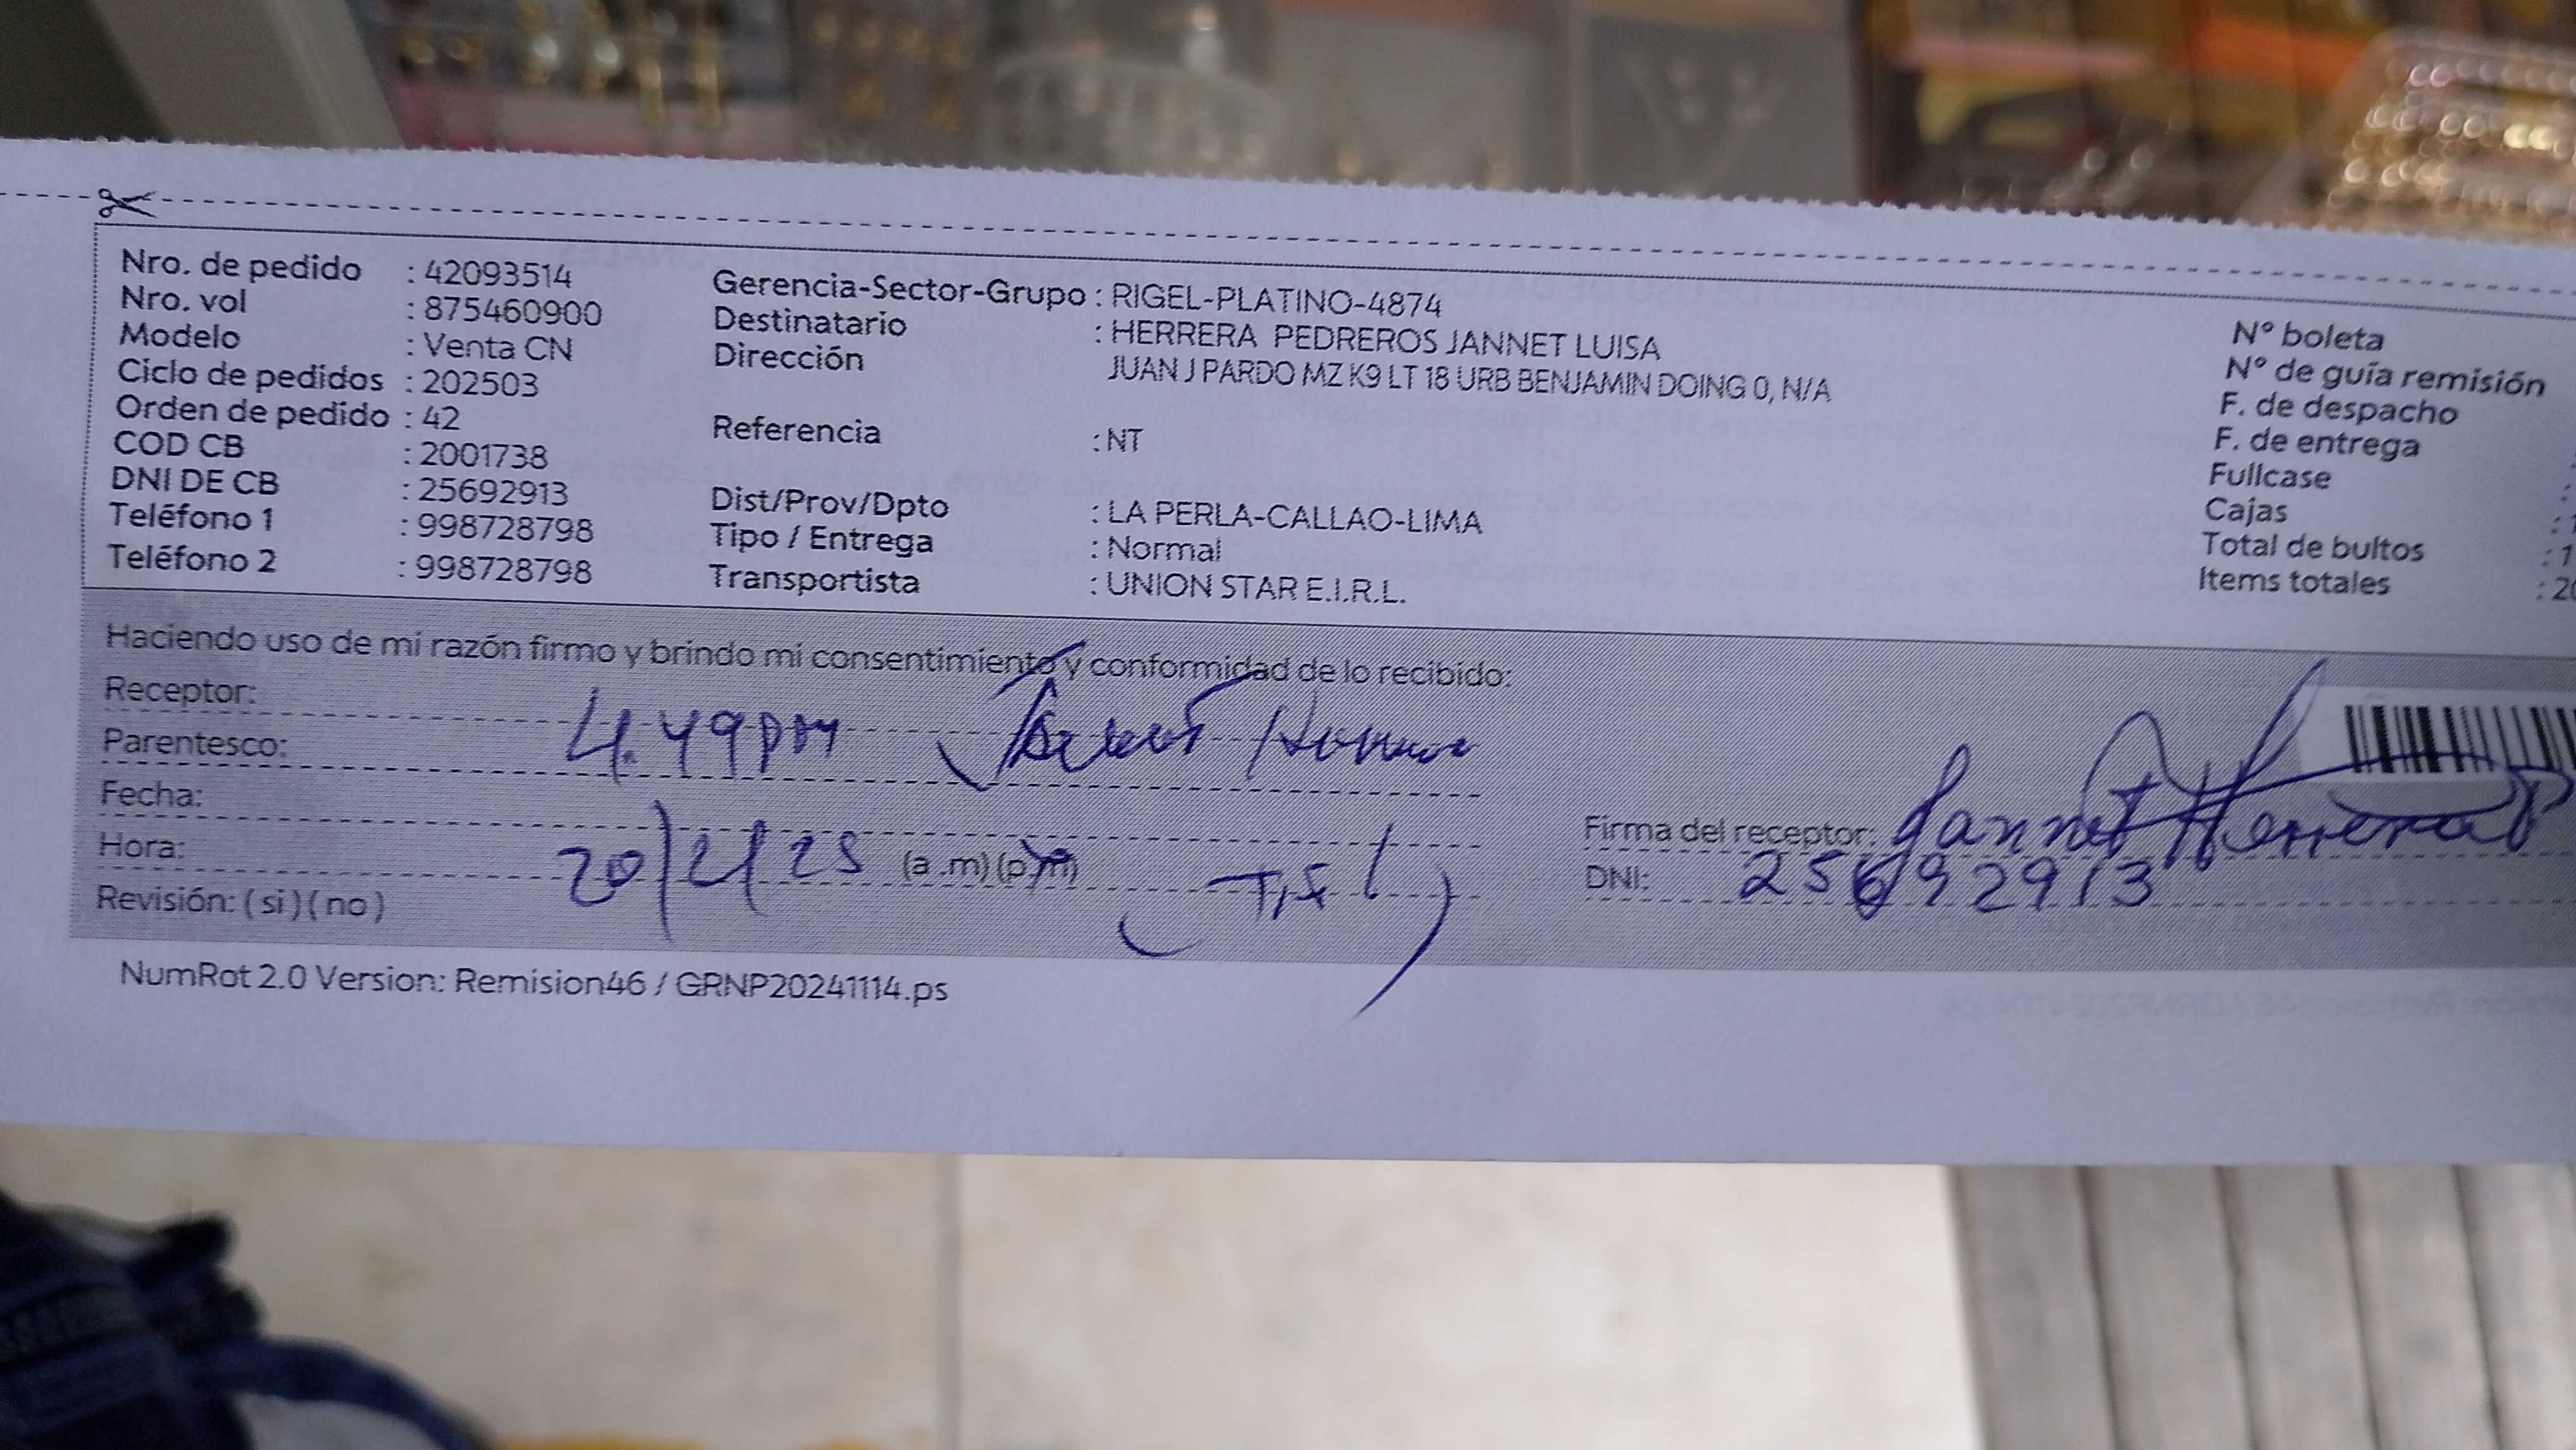 Nro. de pedido : 42093514
Nro. vol : 875460900
Modelo : Venta CN
Ciclo de pedidos : 202503
Orden de pedido : 42
COD CB : 2001738
DNI DE CB : 25692913
Teléfono 1 : 998728798
Teléfono 2 : 998728798
Gerencia-Sector-Grupo : RIGEL-PLATINO-4874
Destinatario : HERRERA PEDREROS JANNET LUISA
Dirección JUAN J PARDO MZ K9 LT 18 URB BENJAMIN DOING 0, N/A
Referencia : NT
Dist/Prov/Dpto : LA PERLA-CALLAO-LIMA
Tipo / Entrega : Normal
Transportista : UNION STAR E.I.R.L.
N° boleta
N° de guía remisión
F. de despacho
F. de entrega
Fullcase
Cajas
Total de bultos
Items totales
Haciendo uso de mi razón firmo y brindo mi consentimiento y conformidad de lo recibido:
Receptor:
4.49 PM
Parentesco:
Fecha:
Hora: 20/2/25 (a.m)(p.m)
Revisión: (si)(no)
Firma del receptor: Jannet Herrera P
DNI: 25692913
NumRot 2.0 Version: Remision46 / GRNP20241114.ps